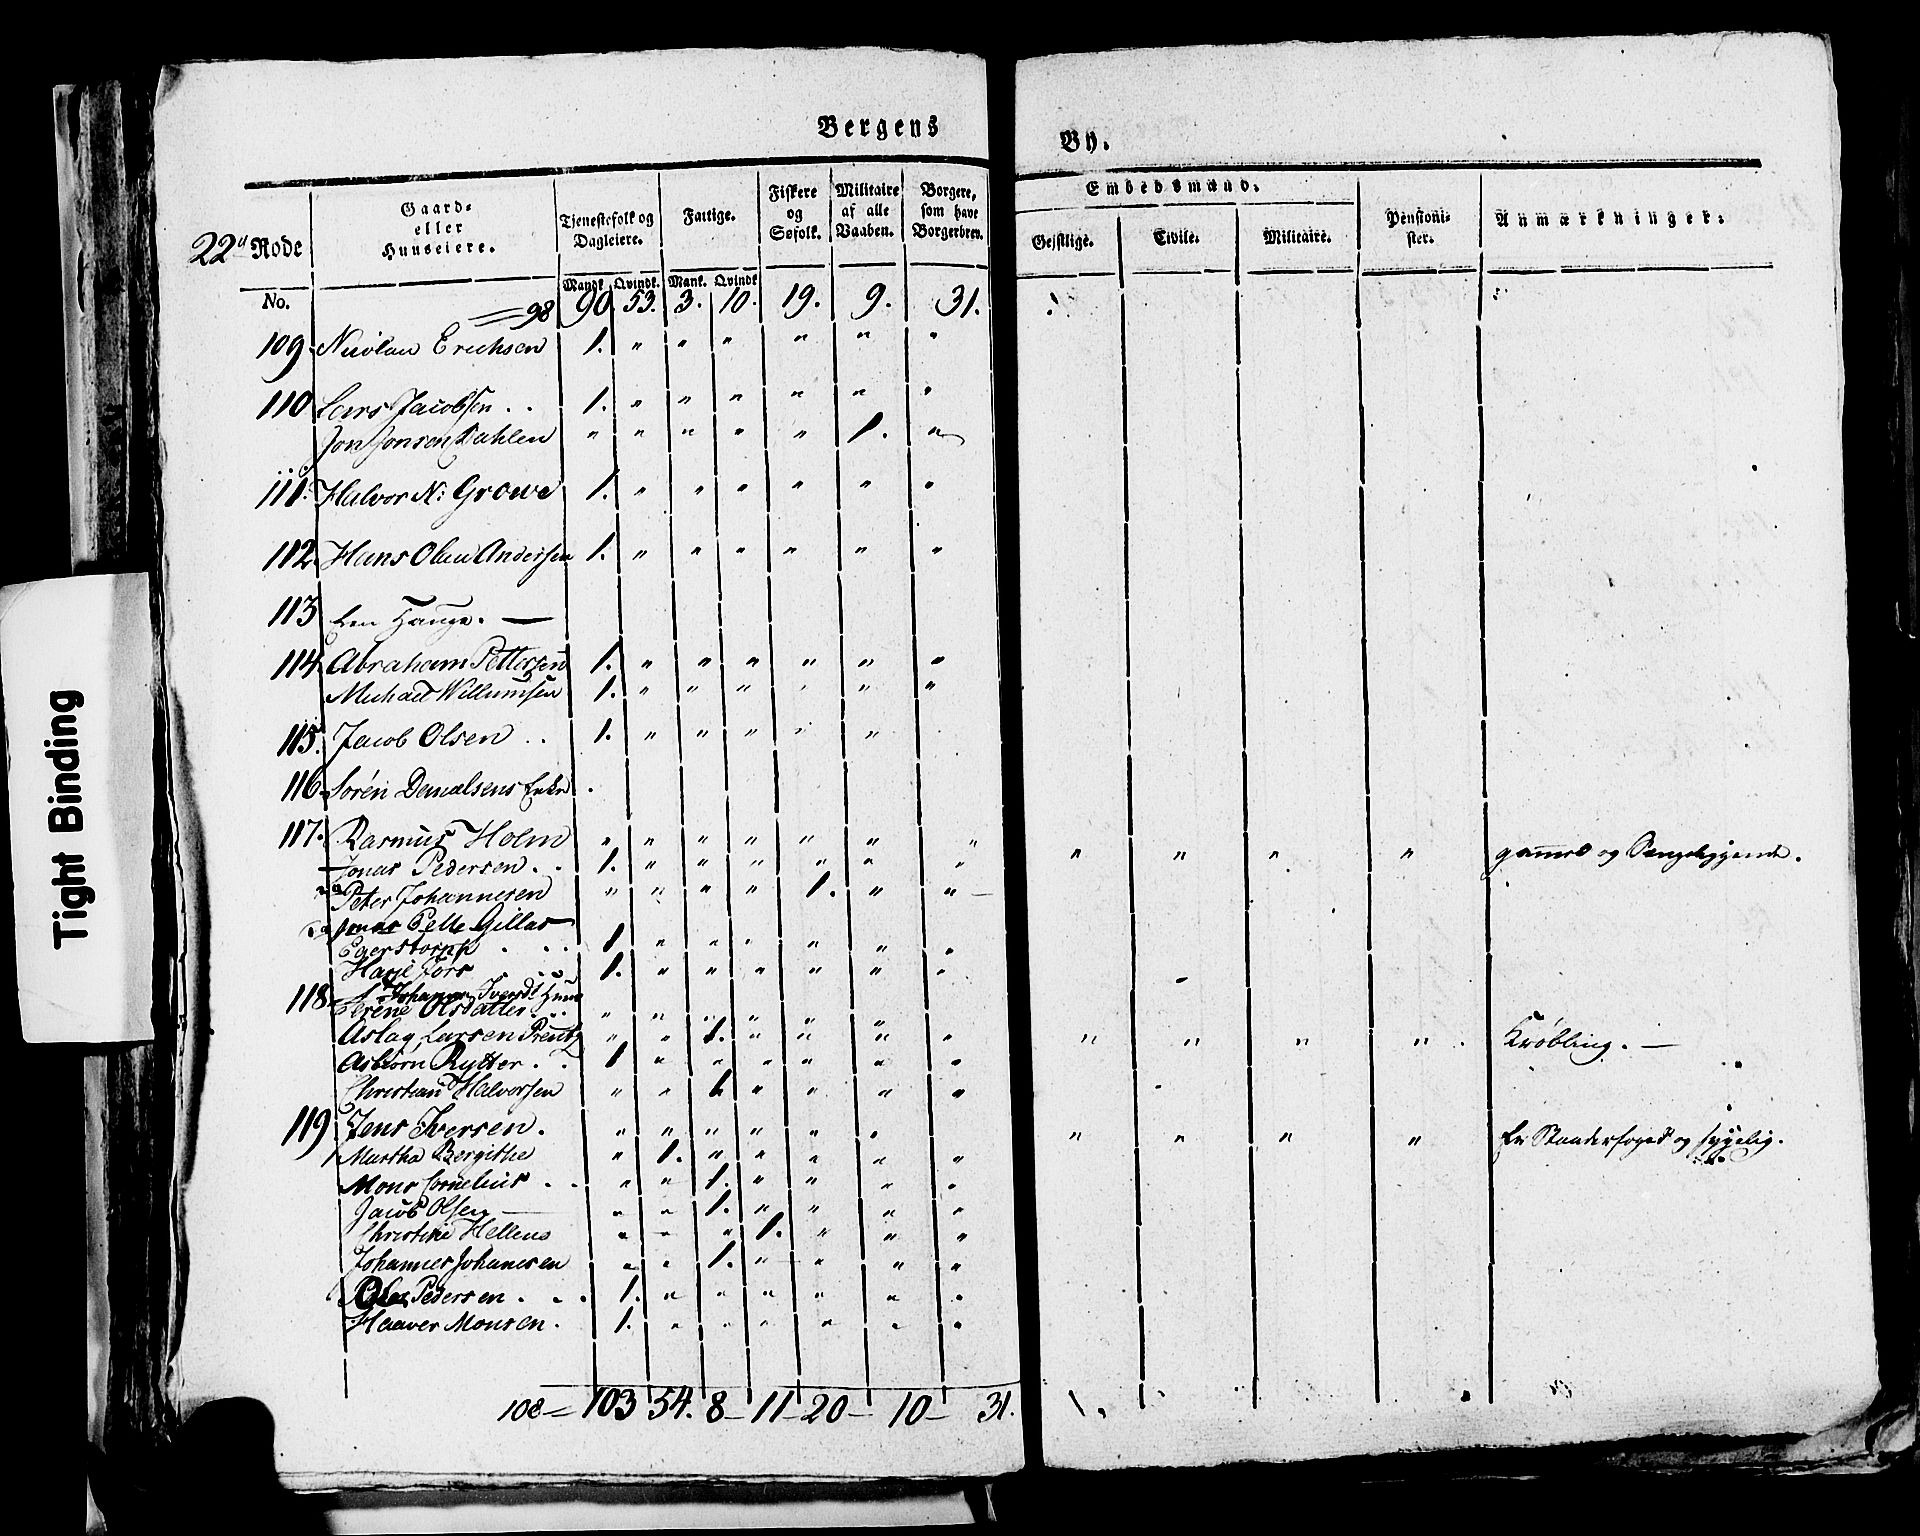 Tight Binding
Bergens By.
22d Rode
No.
Gaard-
eller
Huuseiere.
Tjenestefolk og
Dagleiere.
Mandk. Qvindk.
Fattige.
Mank. Qvindk
Fiskere
og
Søfolk.
Militaire
af alle
Vaaben.
Borgere,
som have
Borgerbrev.
Embedsmænd.
Gejstlige.
Civile.
Militaire.
Pensioni-
ster.
Anmærkninger.
98 90. 53. 3. 10. 19. 9. 31. 1.
109. Nicolau Erichsen 1. " " " " " "
110 Lars Jacobsen . . 1. " " " " " "
Jon Jonsen Dahlen " " " " " 1. "
111. Halvor N: Growe 1. " " " " " "
112. Hans Olau Andersen 1. " " " " " "
113 Een Hauge. —
114. Abraham Pettersen 1. " " " " " "
Michael Willumsen 1. " " " " " "
115. Jacob Olsen . . 1. " " " " "
116. Sørén Danielsens Enke .
117. Rasmus Holm " " " " " " " " " " " gammel og Sengeliggende.
Jonas Pedersen . . 1. " " " " " "
Peter Johannesen " " " " 1. " " —
Jonas Pelle Gillas
Egerstorph . . . 1. " " " " " "
Harje Jørs 1. " " " " " "
118. Johannes Iversds Huus
Serene Olsdatter . . . " " " " " "
Aslag Larsen Prentz " " 1. " " " " " " " " Krøbling. —
Asbiörn Rytter . . 1. " " " " " "
Christian Halvorsen " " 1. " " " "
119 Jens Iversen. " " " " " " " " " " Er Standerfoged og sygelig.
Martha Bergithe " 1. " " " " "
Mons Cornelius . . " " 1. " " " "
Jacob Olsen — " " 1. " " " "
Christine Hellens " " " 1. " " "
Johannes Johanesen " " 1. " " " "
Ole Pedersen . . . 1. " " " " " "
Haaver Monsen . 1. " " " " " "
108 = 103 54. 8 — 11 — 20 — 10 — 31. 1.